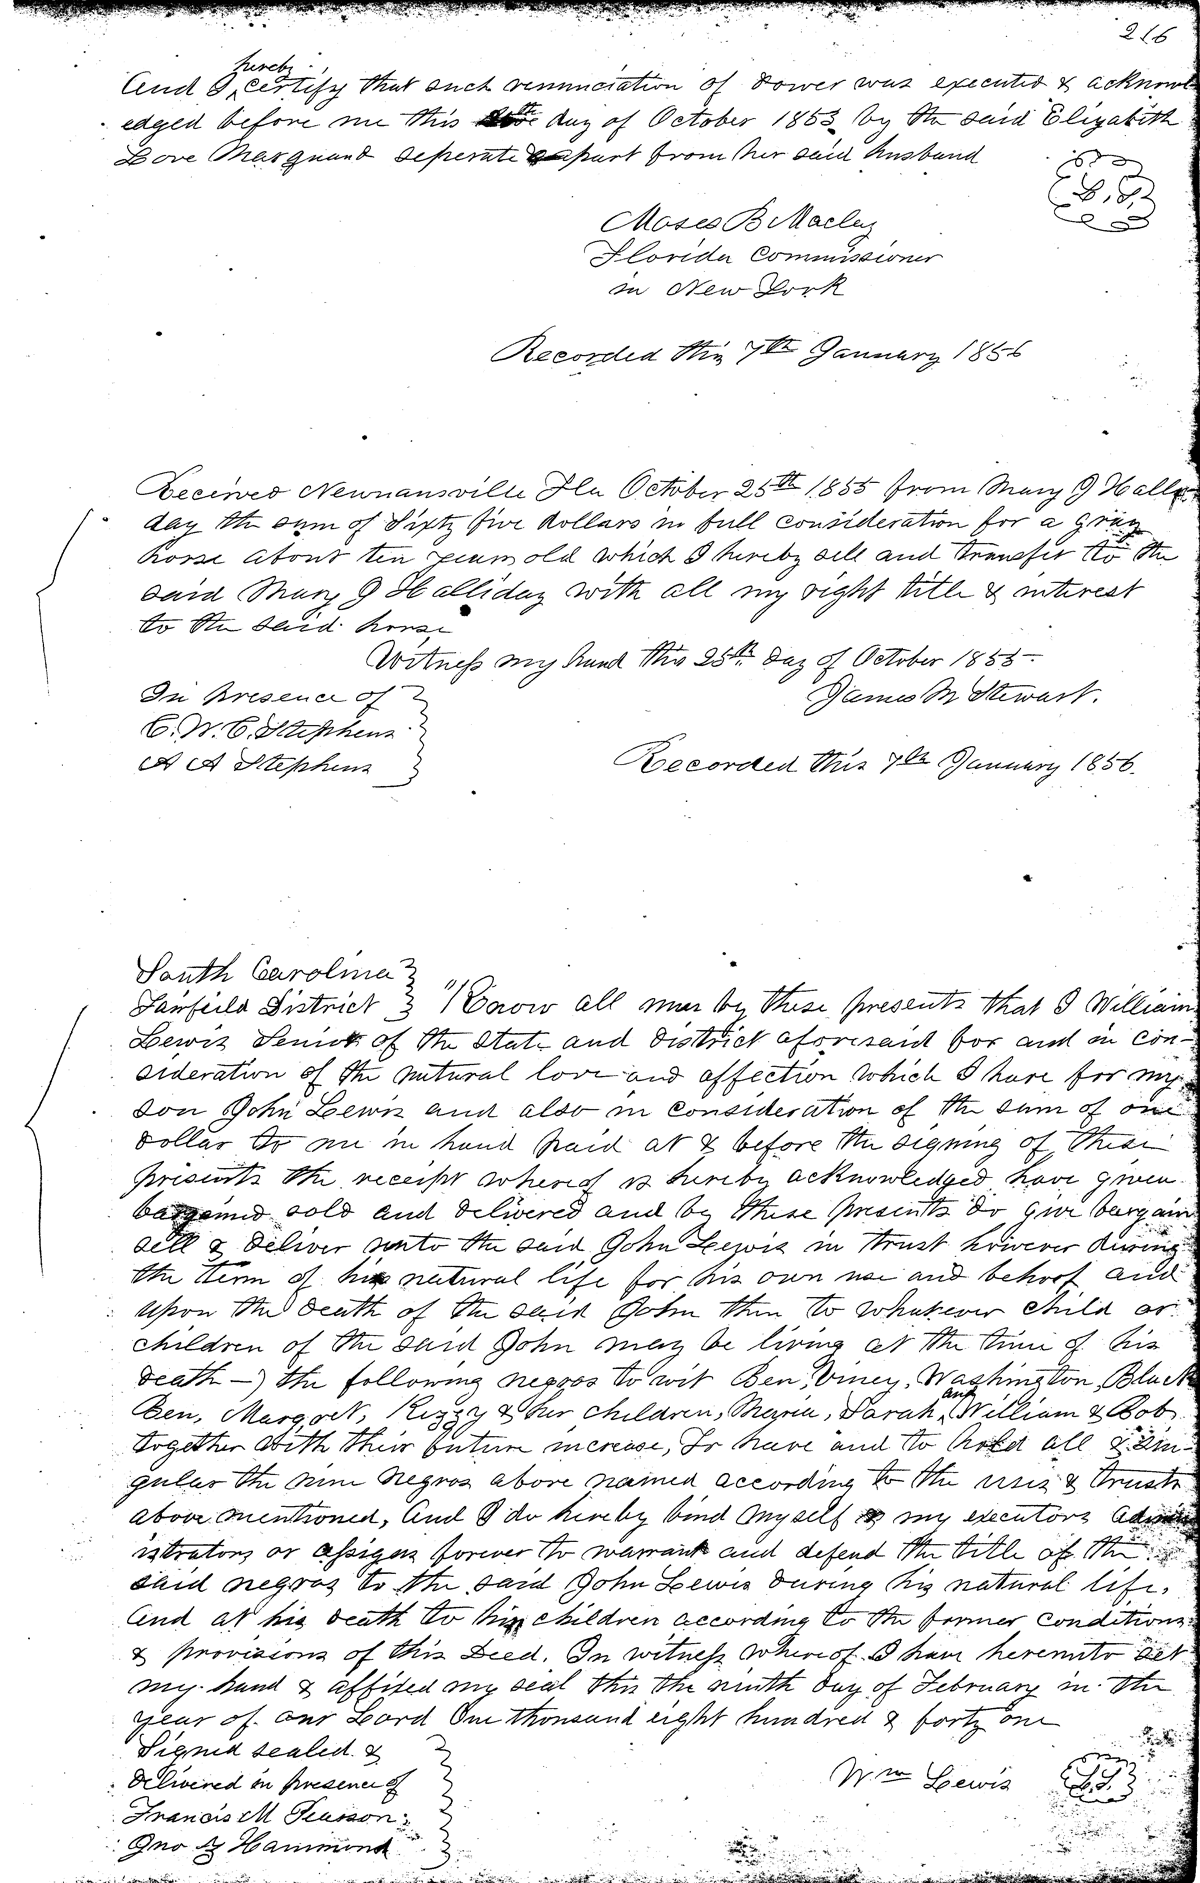 216
And I hereby certify that such renunciation of Dower was executed & acknowl
edged before me this day of October 1853 by the said Elizabeth
Love Marquand seperate & apart from her said husband
L.S.
Moses B Maclay
Florida Commissioner
in New York
Recorded this 7th January 1856
Received Newnansville Fla October 25th 1855 from Mary J Halli
day the sum of Sixty five dollars in full consideration for a gray
horse about ten years old which I hereby sell and transfer to the
said Mary J Halliday with all my right title & interest
to the said horse
Witness my hand this 25th day of October 1855
James M Stewart.
In presence of
C. W. C. Stephens
A A Stephens
Recorded this 7th January 1856.
South Carolina
Fairfeild District "Know all men by these presents that I William
Lewis Senior of the State and District aforesaid for and in con-
sideration of the natural love and affection which I have for my
son John Lewis and also in consideration of the sum of one
dollar to me in hand paid at & before the signing of these
presents the receipt whereof is hereby acknowledged have given
bargained sold and delivered and by these presents do give bargain
sell & deliver unto the said John Lewis in trust however during
the term of his natural life for his own use and behoof and
upon the death of the said John then to whatever child or
children of the said John may be living at the time of his
death —) the following negros to wit Ben, Viney, Washington, Black
Ben, Margret, Kizzy & her children, Maria, Sarah, and William & Bob
together with their future increase, To have and to hold all & sin-
gular the nine Negros above named according to the uses & trusts
above mentioned, And I do hereby bind myself my executors admin
istrators or assigns forever to warrant and defend the title of the
said negros to the said John Lewis during his natural life,
And at his death to his children according to the former conditions
& provisions of this Deed. In witness whereof I have hereunto set
my hand & affixed my seal this the ninth day of February in the
year of our Lord One thousand eight hundred & forty one
Signed sealed &
delivered in presence of
Francis M Pearson
Jno Hammond
Wm Lewis L.S.